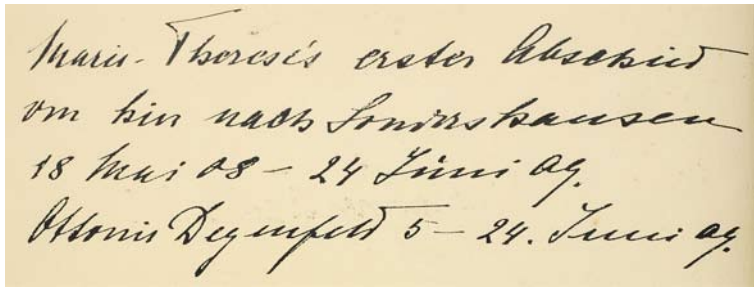 Marie-Therese's erster Abschied
von hier nach Sondershausen
18 Mai 08 – 24 Juni 09.
Ottonie Degenfeld 5 – 24. Juni 09.